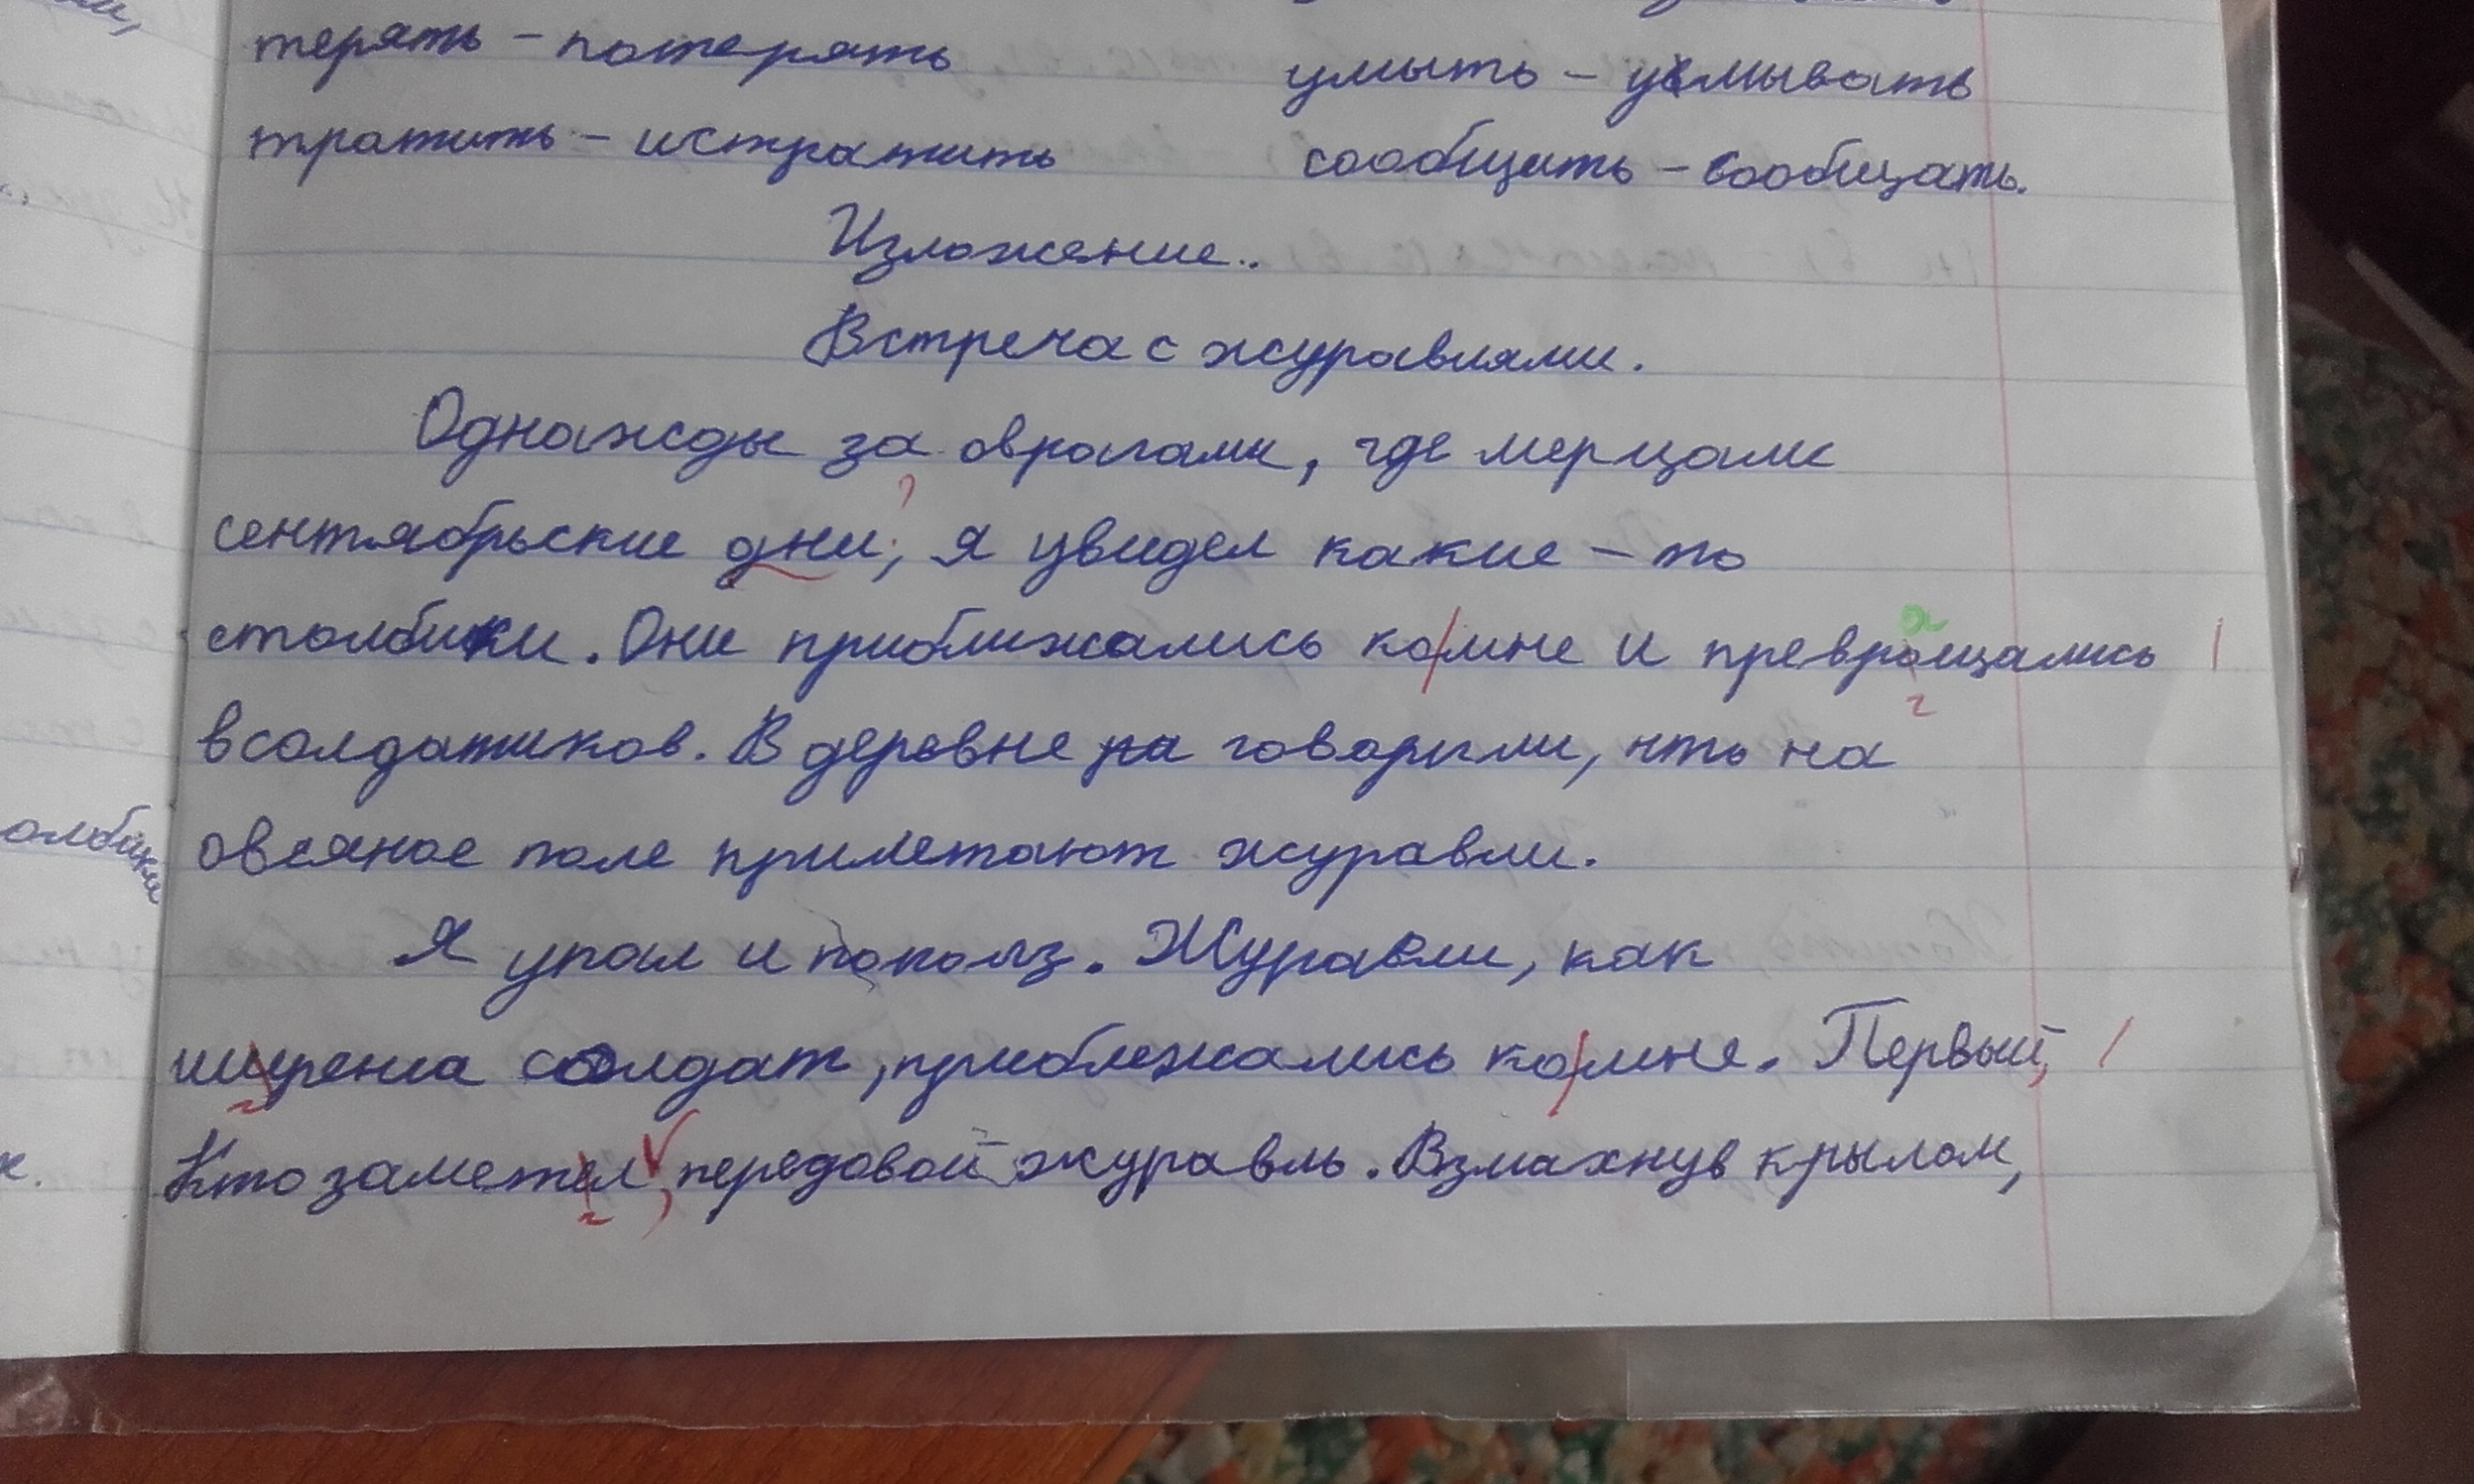 терять – потерять
умыть – умывать
тратить – истратить
сообщить – сообщать.
Изложение..
Встреча с журавлями.
Однажды за оврагами, где мерцали
сентябрьские дни, я увидел какие – то
олбики
столбики. Они приближались комне и превращались
всолдатиков. В деревне говорили, что на
овсяное поле прилетают журавли.
Я упал и пополз. Журавли, как
шуренга солдат, приближались комне. Первый,
Кто заметел, передовой журавль. Взмахнув крылом,